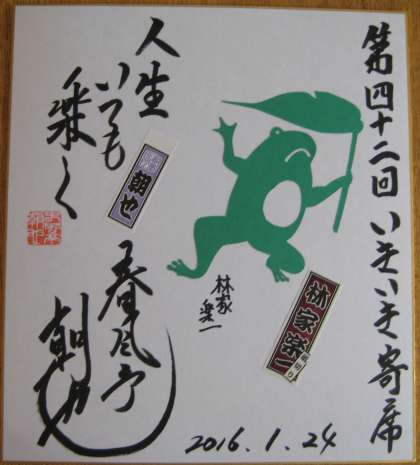 第四十二回 いきいき寄席
人生
いつも
楽しく
春風亭
朝也
朝也
林家
楽一
林家楽一
2016.1.24